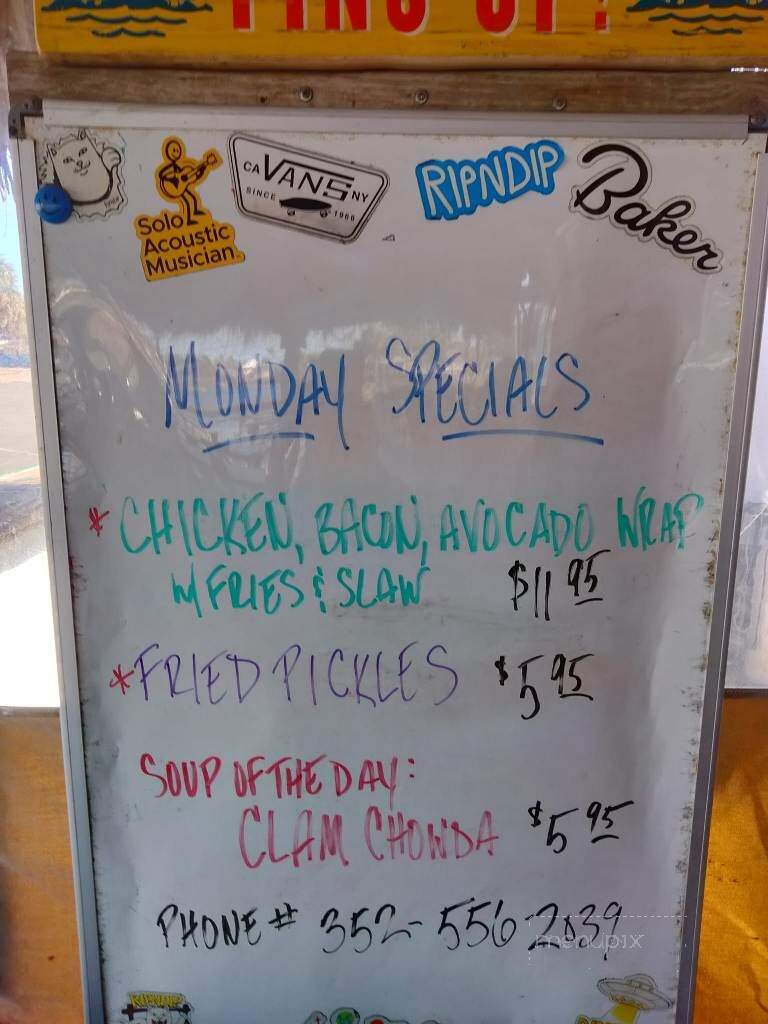 PING UP!
Solo
Acoustic
Musician
CA VANS NY
SINCE 1966
RIPNDIP
Baker
MONDAY SPECIALS
* CHICKEN, BACON, AVOCADO WRAP
W/ FRIES & SLAW $11 95
* FRIED PICKLES $5 95
SOUP OF THE DAY:
CLAM CHOWDA $5 95
PHONE # 352-556 2839
menupix